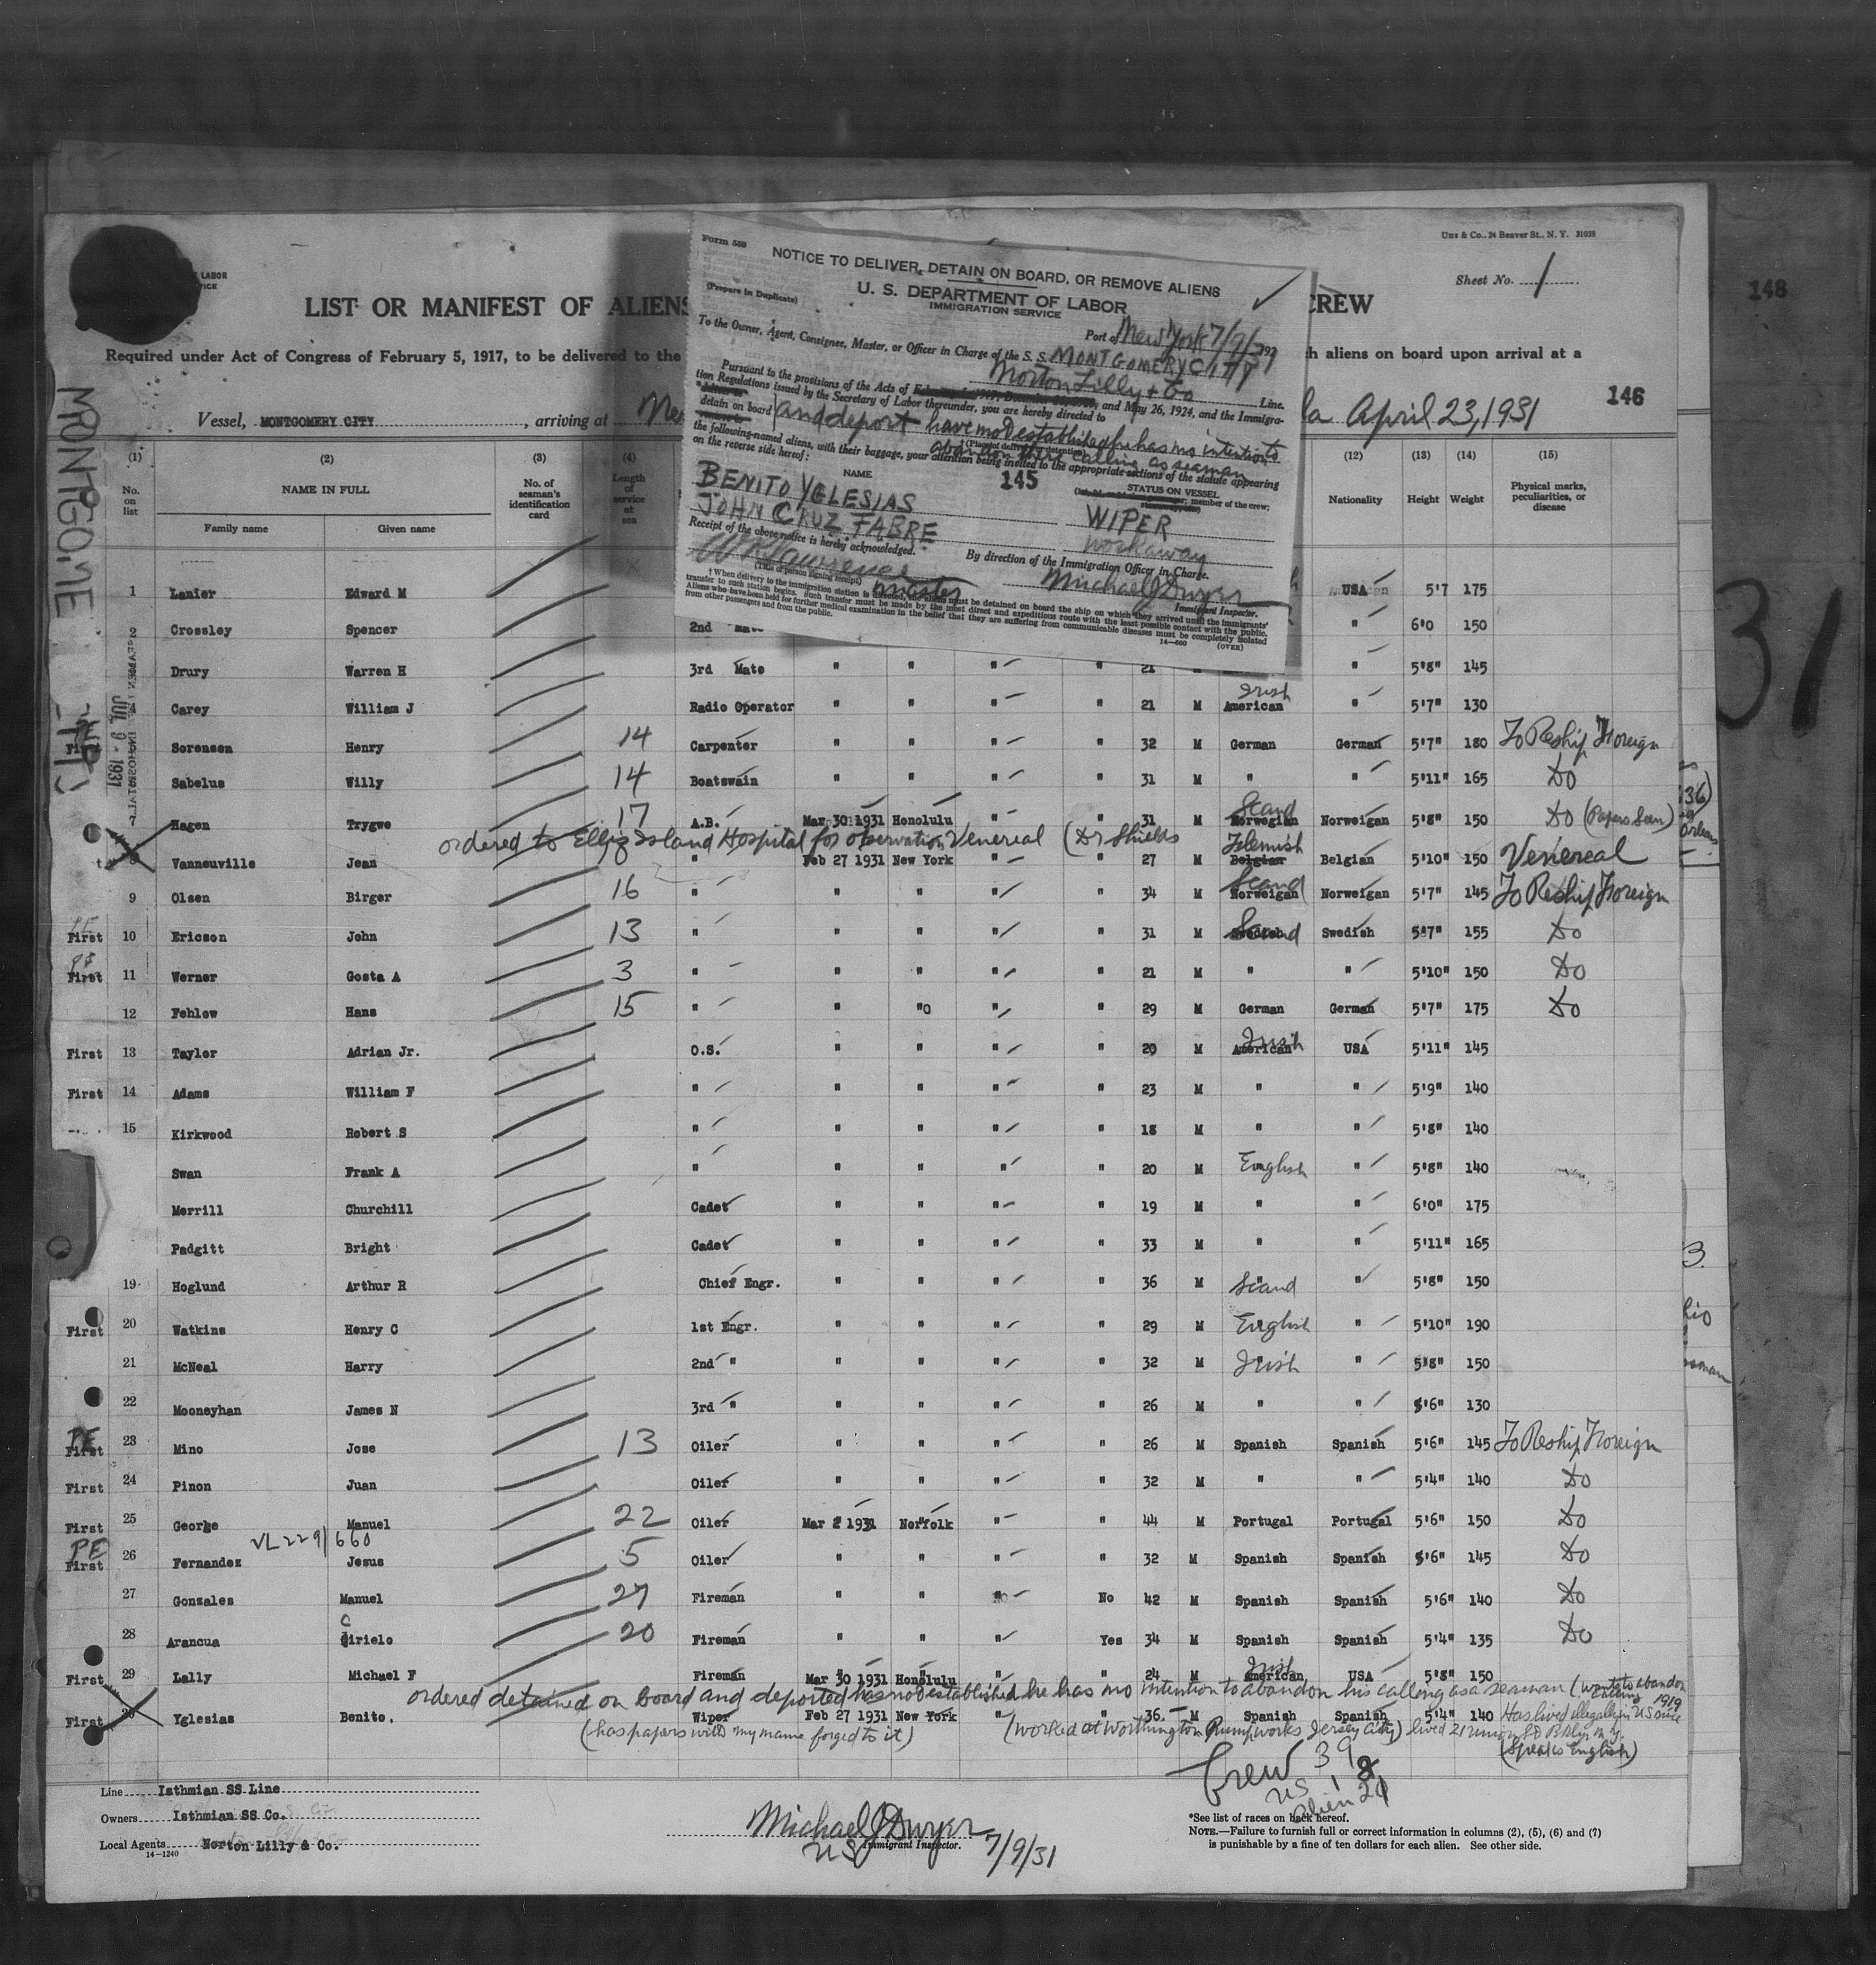 Uns & Co., 24 Beaver St., N. Y. 31038
Form 589
NOTICE TO DELIVER, DETAIN ON BOARD, OR REMOVE ALIENS
(Prepare in Duplicate)
U. S. DEPARTMENT OF LABOR
IMMIGRATION SERVICE
Port of New York 7/9/31
To the Owner, Agent, Consignee, Master, or Officer in Charge of the S. S. MONTGOMERY CITY
Norton Lilly + Co Line.
Pursuant to the provisions of the Acts of 1917, and May 26, 1924, and the Immigra-
tion Regulations issued by the Secretary of Labor thereunder, you are hereby directed to
detain on board and deport have not established he has no intention to
abandon there calling as seaman
the following-named aliens, with their baggage, your attention being invited to the appropriate sections of the statute appearing
on the reverse side hereof:
NAME 145 STATUS ON VESSEL
member of the crew;
BENITO YGLESIAS WIPER
JOHN CRUZ FABRE workaway
Receipt of the above notice is hereby acknowledged. By direction of the Immigration Officer in Charge.
W Lawrence Michael J Dwyer
(Title of person signing receipt) master Immigrant Inspector.
† When delivery to the immigration station is directed, the aliens must be detained on board the ship on which they arrived until the immigrants'
transfer to such station begins. Such transfer must be made by the most direct and expeditious route with the least possible contact with the public.
Aliens who have been held for further medical examination in the belief that they are suffering from communicable diseases must be completely isolated
from other passengers and from the public.
14—660 (OVER)
LABOR
VICE
Sheet No. 1
LIST OR MANIFEST OF ALIENS CREW
148
31
Required under Act of Congress of February 5, 1917, to be delivered to the ch aliens on board upon arrival at a
146
Vessel, MONTGOMERY CITY, arriving at New la April 23, 1931
MONTGOME
JUL 9 - 1931
(1) (2) (3) (4) (12) (13) (14) (15)
No. on list NAME IN FULL No. of seaman's identification card Length of service at sea Nationality Height Weight Physical marks, peculiarities, or disease
Family name Given name
1 Lanier Edward M USA 5'7 175
2 Crossley Spencer 2nd Mate " 6'0 150
Drury Warren H 3rd Mate " " " " 21 " 5'8" 145
Carey William J Radio Operator " " " " 21 M American Irish " 5'7" 130
First Sorensen Henry 14 Carpenter " " " " 32 M German German 5'7" 180 To Reship Foreign
Sabelus Willy 14 Boatswain " " " " 31 M " " 5'11" 165 Do
7 Hagen Trygwe 17 A.B. Mar 30 1931 Honolulu " " 31 M Norwegian Scand Norweigan 5'8" 150 Do (Papers Seen)
ordered to Ellis Island Hospital for observation Venereal (Dr Shields
8 Vanneuville Jean " Feb 27 1931 New York " " 27 M Belgian Flemish Belgian 5'10" 150 Venereal
9 Olsen Birger 16 " " " " " 34 M Norweigan Scand Norweigan 5'7" 145 To Reship Foreign
First 10 Ericson John 13 " " " " " 31 M Scand Swedish 5'7" 155 Do
First 11 Werner Gosta A 3 " " " " " 21 M " " 5'10" 150 Do
12 Fehlow Hans 15 " " "0 " " 29 M German German 5'7" 175 Do
First 13 Taylor Adrian Jr. O.S. " " " " 20 M American Irish USA 5'11" 145
First 14 Adams William F " " " " " 23 M " " 5'9" 140
15 Kirkwood Robert S " " " " " 18 M " " 5'8" 140
Swan Frank A " " " " " 20 M English " 5'8" 140
Merrill Churchill Cadet " " " " 19 M " " 6'0" 175
Padgitt Bright Cadet " " " " 33 M " " 5'11" 165
19 Hoglund Arthur R Chief Engr. " " " " 36 M Scand " 5'8" 150
First 20 Watkins Henry C 1st Engr. " " " " 29 M English " 5'10" 190
21 McNeal Harry 2nd " " " " " 32 M Irish " 5'8" 150
22 Mooneyhan James N 3rd " " " " " 26 M " " 5'6" 130
PE First 23 Mino Jose 13 Oiler " " " " 26 M Spanish Spanish 5'6" 145 To Reship Foreign
First 24 Pinon Juan Oiler " " " " 32 M " " 5'4" 140 Do
First 25 George Manuel 22 Oiler Mar 2 1931 Norfolk " " 44 M Portugal Portugal 5'6" 150 Do
VL 229/660
PE First 26 Fernandez Jesus 5 Oiler " " " " 32 M Spanish Spanish 5'6" 145 Do
27 Gonzales Manuel 27 Fireman " " No No 42 M Spanish Spanish 5'6" 140 Do
28 Arancua Cirielo 20 Fireman " " " Yes 34 M Spanish Spanish 5'4" 135 Do
First 29 Lally Michael F Fireman Mar 30 1931 Honolulu " " 24 M American Irish USA 5'8" 150
ordered detained on board and deported has not established he has no intention to abandon his calling as a seaman (wants to abandon calling
First 30 Yglesias Benito. Wiper Feb 27 1931 New York " " 36 M Spanish Spanish 5'4" 140 Has lived illegally in US since 1919
(has papers with my name forged to it) (worked at Worthington Pump works Jersey City) lived 21 Union St Bklyn N.Y.
(Speaks English)
Crew 39
US 18
Alien 21
Line Isthmian SS Line
Owners Isthmian SS Co.
Local Agents Norton Lilly & Co.
14—1240
Michael J Dwyer
US Immigrant Inspector. 7/9/31
*See list of races on back hereof.
NOTE.—Failure to furnish full or correct information in columns (2), (5), (6) and (7)
is punishable by a fine of ten dollars for each alien. See other side.